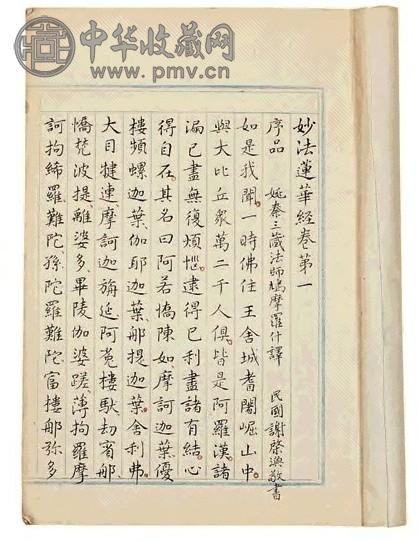 中华收藏网
www.pmv.cn
妙法蓮華經卷第一
序品 姚秦三藏法師鳩摩羅什譯 民國謝興敬書
如是我聞一時佛住王舍城耆闍崛山中
與大比丘眾萬二千人俱皆是阿羅漢諸
漏已盡無復煩惱逮得已利盡諸有結心
得自在其名曰阿若憍陳如摩訶迦葉優
樓頻螺迦葉伽耶迦葉那提迦葉舍利弗
大目犍連摩訶迦旃延阿㝹樓馱劫賓那
憍梵波提離婆多畢陵伽婆蹉薄拘羅摩
訶拘絺羅難陀孫陀羅難陀富樓那弥多